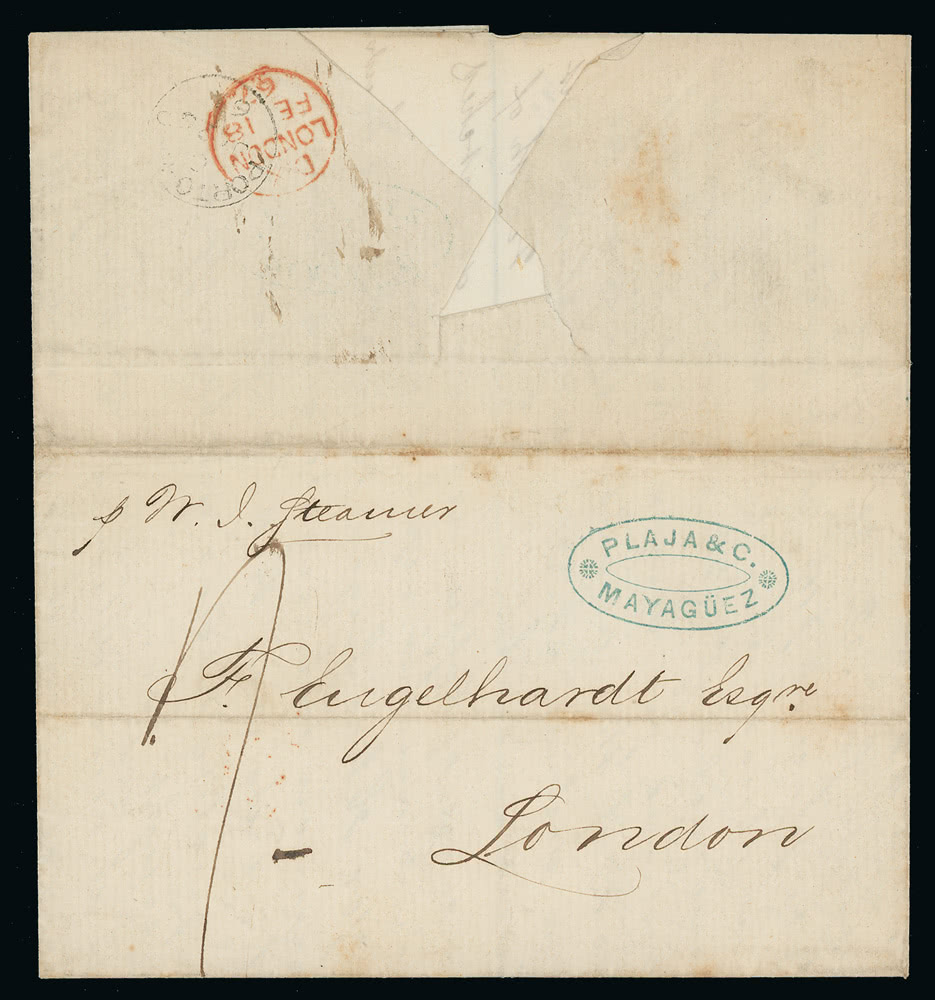 LONDON
18
FE
67
PORTO
p W. I. Steamer
PLAJA & C.
MAYAGÜEZ
F. Engelhardt Esqre
London